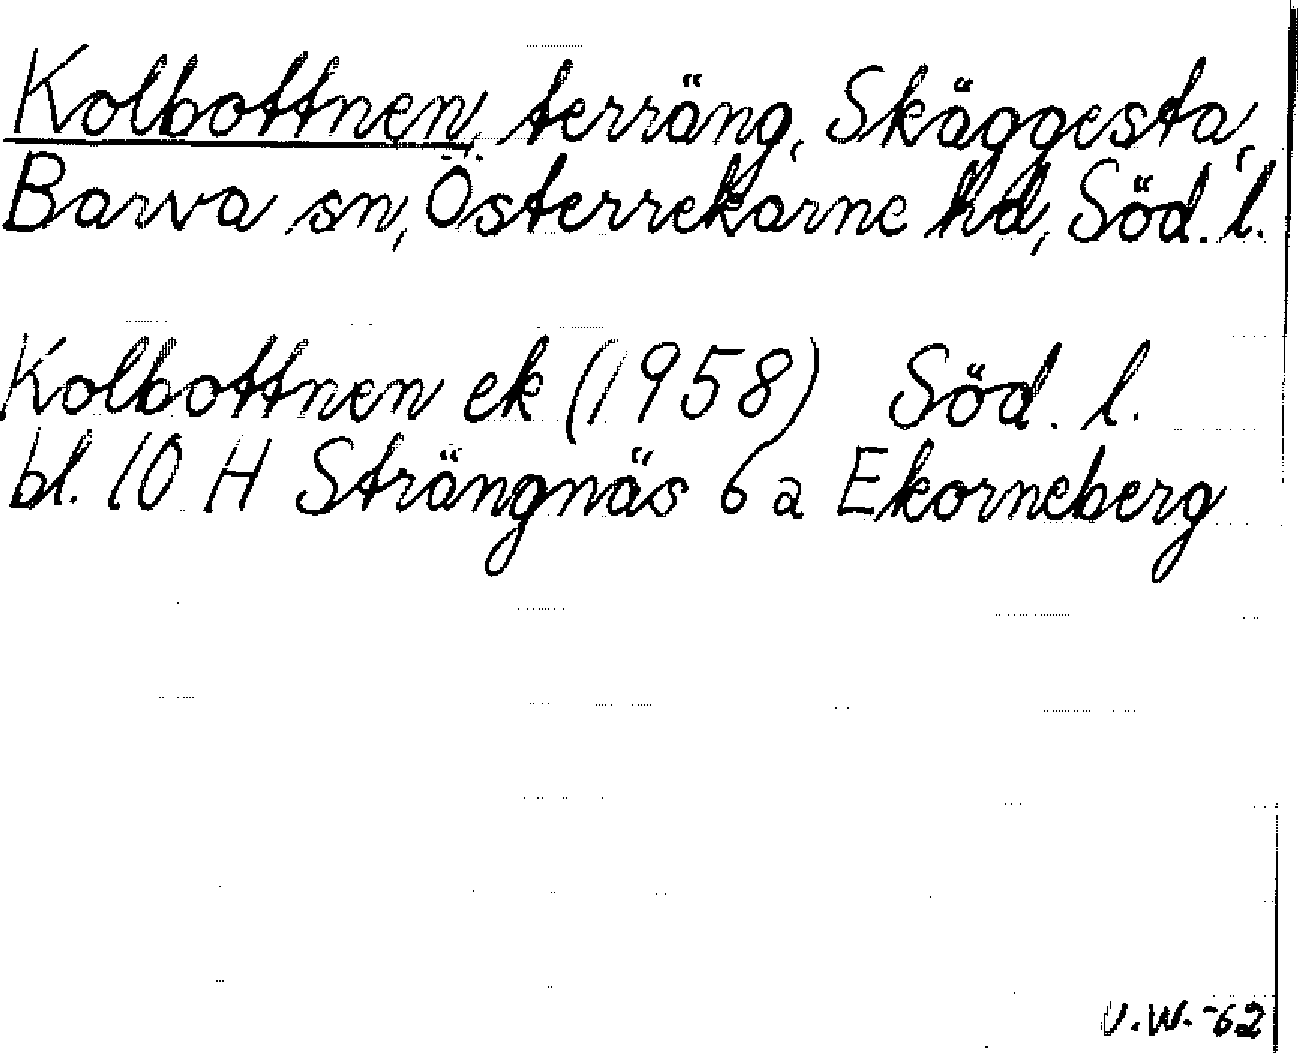 Kolbottnen, terräng, Skäggesta,
Barva sn, Österrekarne hd, Söd. l.
Kolbottnen ek (1958) Söd. l.
bl. 10 H Strängnäs 6 a Ekorneberg
V.W.-62